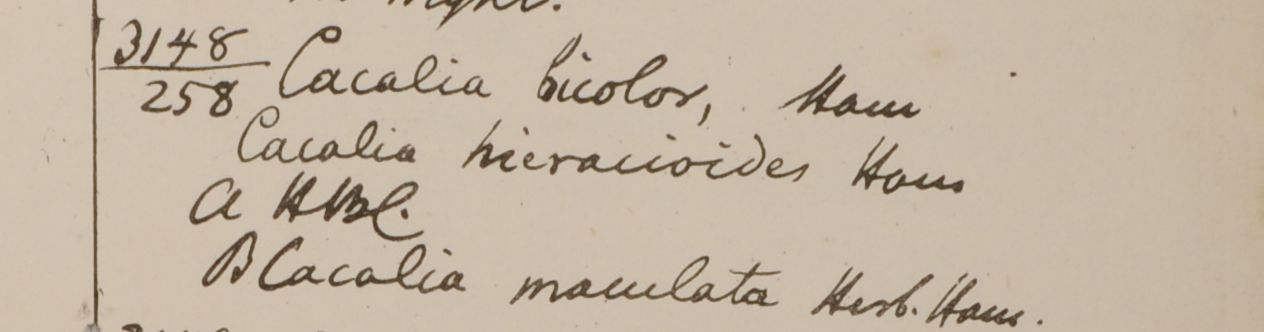 3148 Cacalia bicolor, Ham
258
Cacalia hieracioides Ham
A HBC.
B Cacalia maculata Herb. Ham.